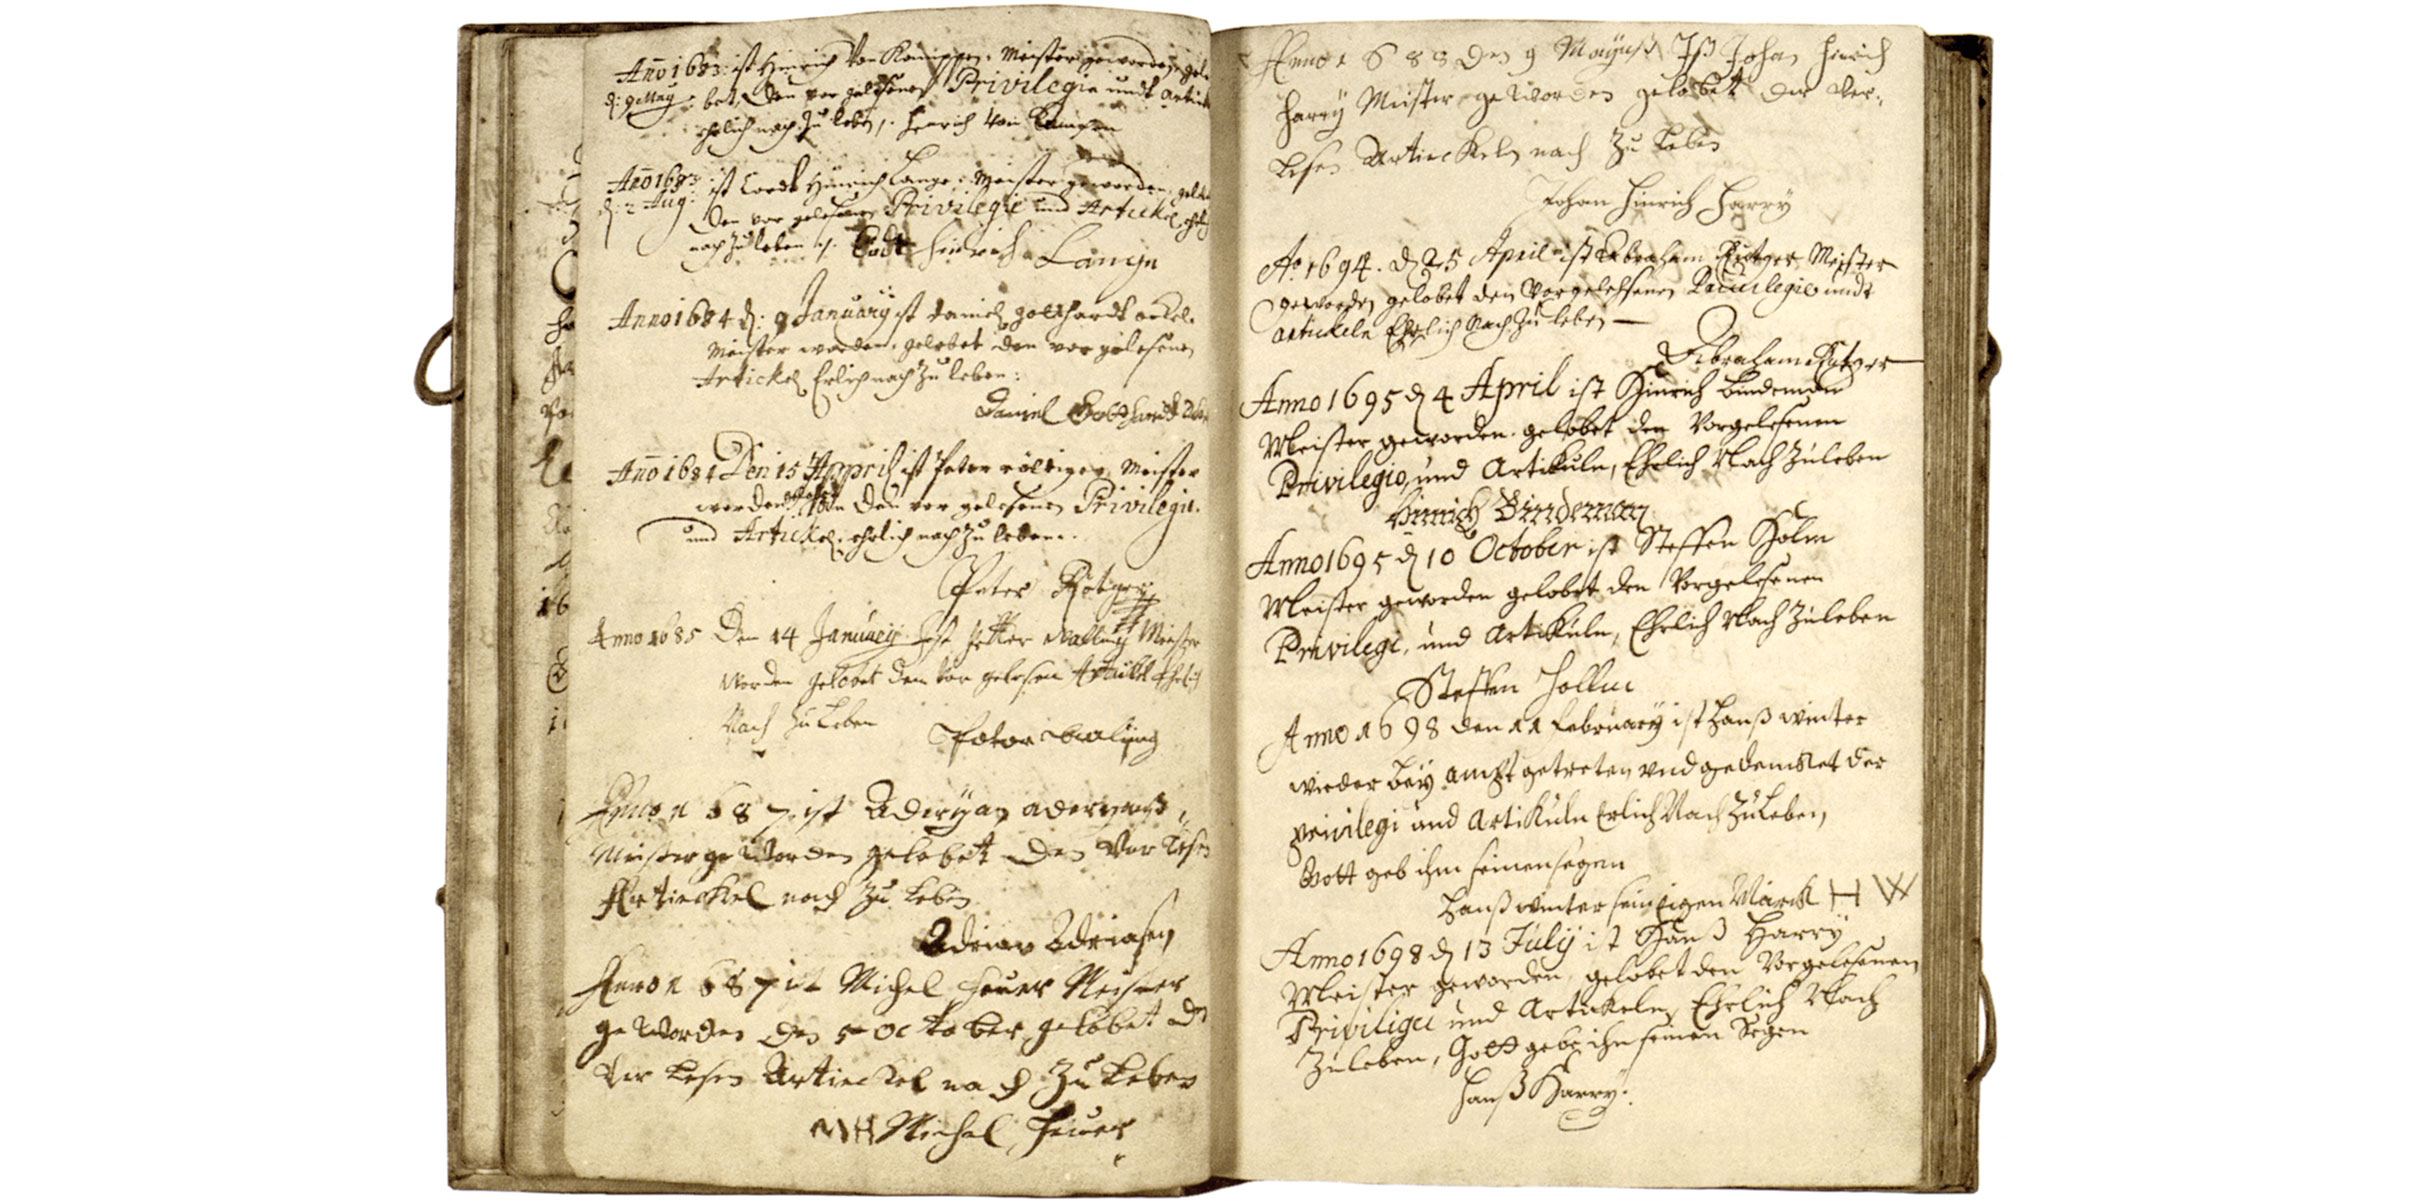 Año 1683: ist Hinrich Von Kampen. Meister geworden, gelo
d: 9 May. bet, Den vor gelesenen Privilegie undt Artick
ehrlich nach zu leben, Henrich Von Kampen
Año 1683 ist Cordt Hinrich Lange. Meister geworden, gelobet
d: 2 Aug: Den vor gelesenen Privilegie und Artickel, ehrlich
nach zu leben Cordt Hinrich Lange
Anno 1684 d: 9 January ist Daniel Gotthardt
Meister worden, gelobet den vor gelesenen
Artickel Erlich nach zu leben:
Daniel Gotthardt
Año 1684 Den 15 Appril ist Peter Meister
worden gelobet Den vor gelesenen Privilegie.
und Artickel. ehrlich nach zu leben.
Peter Rötger
Anno 1685 Den 14 January Ist Petter Meister
Worden gelobet dem vor gelesen Artickel Ehrlich
Nach zu Leben
Peter
Anno 1687 ist Aderyan
Meister geworden gelobet den Vor lesen
Artieckel nach zu leben
Adrian Adriasen
Anno 1687 ist Michel Heuer Meister
geworden den 5 October gelobet den
Ver lesen Artieckel nach zu leben
MH Michel Heuer
Anno 1688 den 9 Mayus Ist Johan Hinrich
Harry Meister geworden gelobet der Ver,
lesen Artieckeln nach zu leben
Johan Hinrich Harry
Ao 1694. d 25 April ist Abraham Rutger Meister
geworden gelobet den Vorgelehsenen Privilegie undt
Artickeln Ehrlich Nach zu leben
Abraham Rutger
Anno 1695 d 4 April ist Hinrich Bindeman
Meister geworden. gelobet den Vorgelesenen
Privilegio, und Artikuln, Ehrlich Nach Zuleben
Hinrich Bindeman
Anno 1695 d 10 October ist Steffen Holm
Meister geworden gelobet den Vorgelesenen
Privilegi, und Artikuln, Ehrlich Nach Zuleben
Steffen Hollm
Anno 1698 den 11 February ist Hanß Winter
wieder bey ampt getreten und gedencket der
privilegi und Artikuln Erlich Nach Zu Leben,
Gott geb ihm seinen segen
Hanß winter sein eigen Marck H W
Anno 1698 d 13 July ist Hanß Harry
Meister geworden, gelobet den Vorgelesenen
Priviligei und Artickeln, Ehrlich Nach
Zu leben, Gott gebe ihn seinen Segen
Hanß Harry.